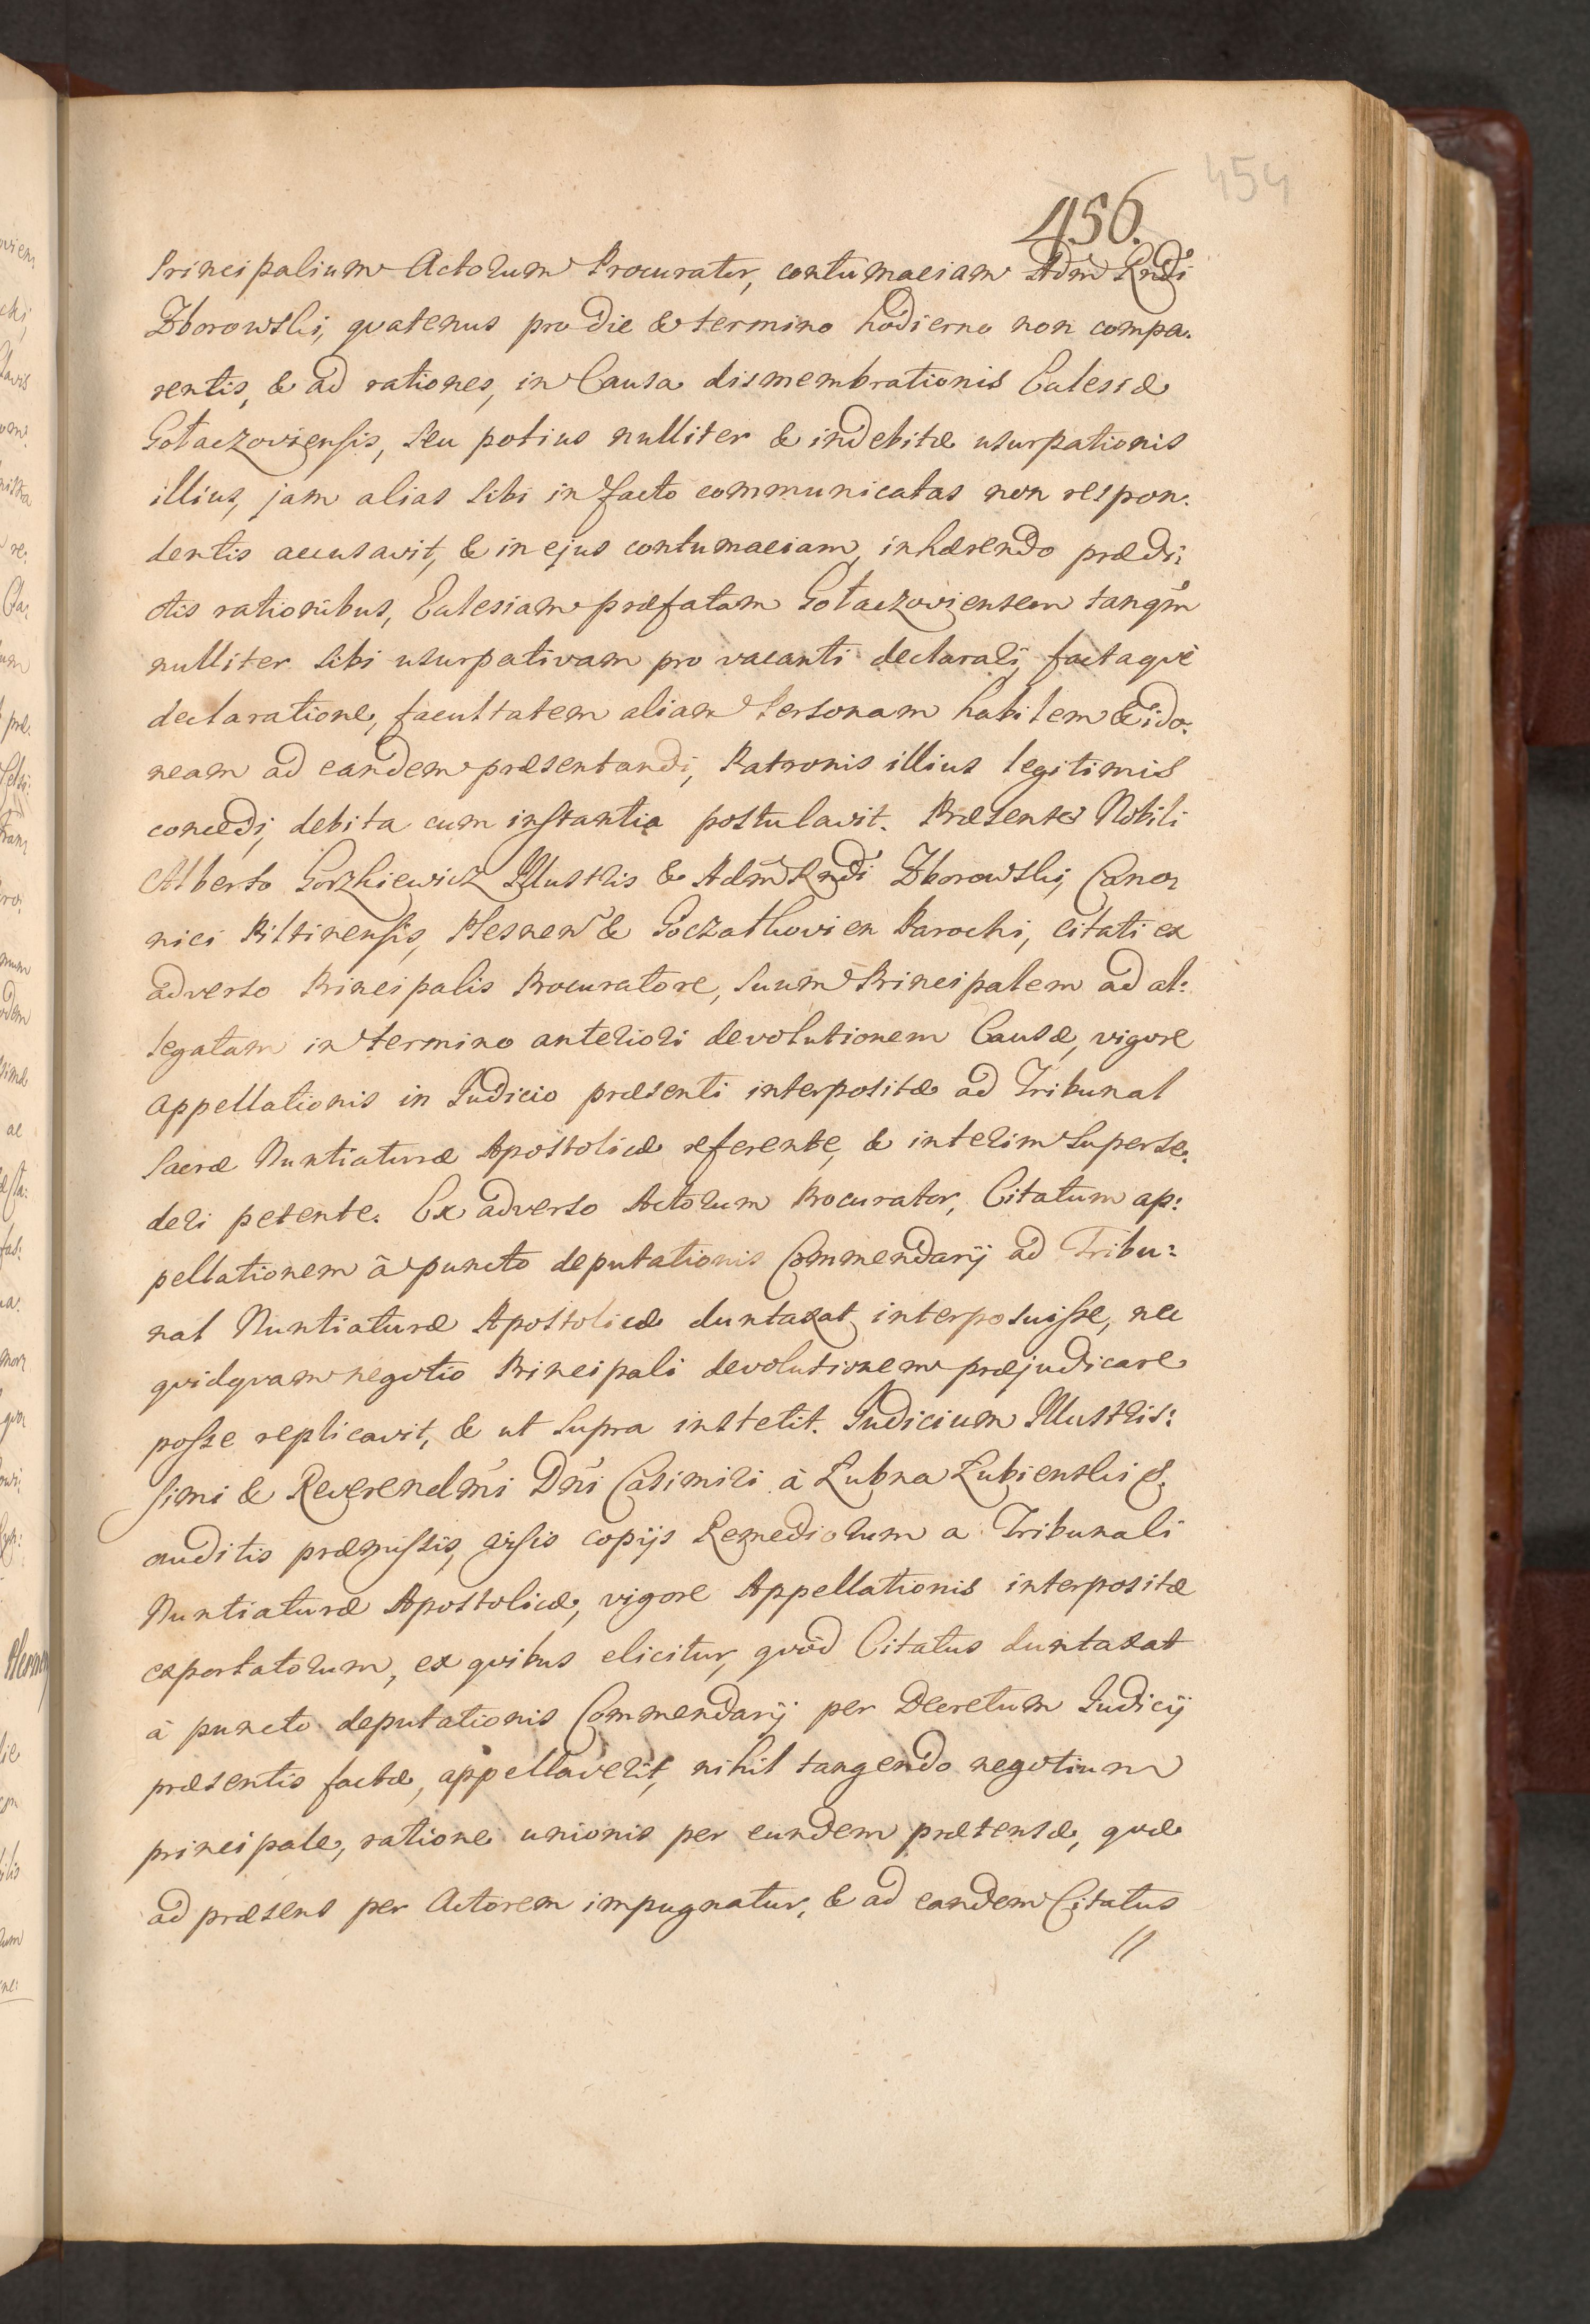 454
456.
Principalium Actorum Procurator, contumaciam Adm Rndi
Zborowski, qvatenus pro die & termino hodierno non compa:
rentis, & ad rationes, in Causa dismembrationis Ecclesiæ
Gołaczoviensis, seu potius nulliter & indebitæ usurpationis
illius, jam alias sibi in facto communicatas non respon:
dentis accusavit, & in ejus contumaciam, inhærendo prædi:
ctis rationibus, Ecclesiam præfatam Gołaczoviensem tanqm
nulliter sibi usurpativam pro vacanti declarari, factaqve
declaratione, facultatem aliam Personam habilem & ido:
neam ad eandem præsentandi, Patronis illius legitimis
concedi, debita cum instantia postulavit. Præsente Nobili
Alberto Gorzkiewicz Illustris & Adm Rndi Zborowski, Cano:
nici Piltinensis, Plesnen & Goczałkovien Parochi, Citati ex
adverso Principalis Procuratore, suum Principalem ad al:
legatam in termino anteriori devolutionem Causæ, vigore
appellationis in Judicio præsenti interpositæ ad Tribunal
Sacræ Nuntiaturæ Apostolicæ referente, & interim superse:
deri petente. Ex adverso Actorum Procurator, Citatum ap:
pellationem à puncto deputationis Commendarij ad Tribu:
nal Nuntiaturæ Apostolicæ duntaxat interposuisse, nec
qvidqvam negotio Principali devolutionem præjudicare
posse replicavit, & ut supra institit. Judicium Illustris:
simi & Reverendmi Dni Casimiri à Łubna Łubienski &
auditis præmissis, visis copijs Remediorum a Tribunali
Nuntiaturæ Apostolicæ, vigore Appellationis interpositæ
exportatorum, ex qvibus elicitur, qvòd Citatus duntaxat
à puncto deputationis Commendarij per Decretum Judicij
præsentis factæ, appellaverit, nihil tangendo negotium
principale, ratione unionis per eundem prætensæ, qvæ
ad præsens per Actorem impugnatur, & ad eandem Citatus
//